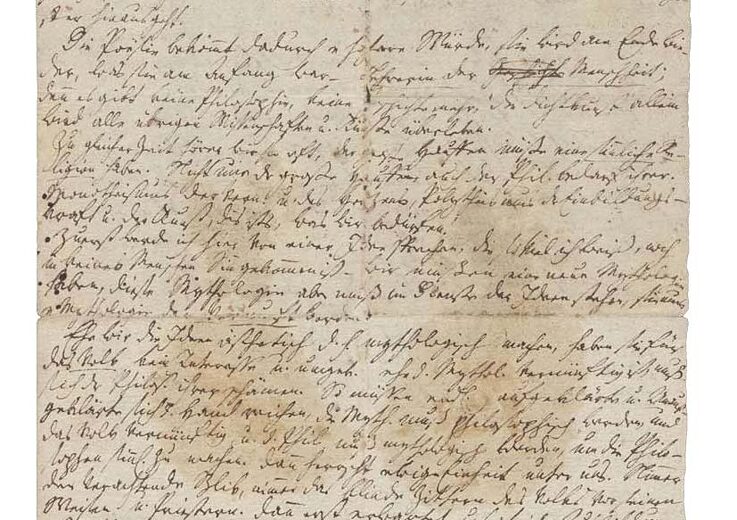 der hinausgeht.
Die Poësie bekömmt dadurch e höhere Würde, sie wird am Ende wie-
der, was sie am Anfang war – Lehrerin der Geschichte Menschheit;
denn es gibt keine Philosophie, keine Geschichte mehr, die Dichtkunst allein
wird alle übrigen Wissenschaften u. Künste überleben.
Zu gleicher Zeit hören wir so oft, der große Hauffen müsse eine sinnliche Re-
ligion haben. Nicht nur der große Hauffen, auch der Phil. bedarf ihrer.
Monotheismus der Vern. u. des Herzens, Polytheismus der Einbildungs-
kraft u. der Kunst, dis ists, was wir bedürfen!
Zuerst werde ich hier von einer Idee sprechen, die so viel ich weiß, noch
in keines Menschen Sinn gekommen ist – wir müssen eine neue Mythologie
haben, diese Mythologie aber muß im Dienste der Ideen stehen, sie mus
e Mythologie der Vernunft werden.
Ehe wir die Ideen ästhetisch d. h. mythologisch machen, haben sie für
das Volk kein Interesse u. umgek. ehe d. Mythol. vernünftig ist, muß
sich der Philos. ihrer schämen. So müssen endl. aufgeklärte u. Unauf-
geklärte sich d. Hand reichen, die Myth. muß philosophisch werden, und
das Volk vernünftig, u. d. Phil. muß mythologisch werden, um die Philo-
sophen sinnl. zu machen. Dann herrscht ewige Einheit unter uns. Nimmer
der verachtende Blik, nimmer das blinde Zittern des Volks vor seinen
Weisen u. Priestern. Dann erst erwartet uns